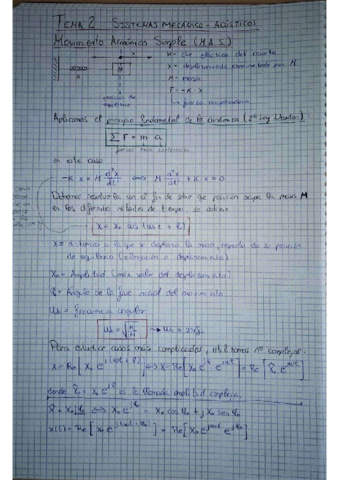 TEMA 2 SISTEMAS MECÁNICO-ACÚSTICOS
Movimiento Armónico Simple (M.A.S.)
K = cte elástica del resorte
x = desplazamiento experimentado por M
M = masa
F = -K · x
↳ fuerza recuperadora
Aplicamos el principio fundamental de la dinámica (2ª Ley Newton)
∑ F = m a
en este caso
-K x = M d²x/dt² ⟺ M d²x/dt² + K x = 0
Debemos resolverla con el fin de saber que posición ocupa la masa M
en los diferentes instantes de tiempo, se obtiene
x = x₀ cos (ω₀ t + φ₀)
x = distancia a la que se desplaza la masa, respecto de su posición
de equilibrio (elongación o desplazamiento)
X₀ = Amplitud (máx valor del desplazamiento)
φ₀ = Ángulo de la fase inicial del movimiento
ω₀ = frecuencia angular
ω₀ = √(K/M) → ω₀ = 2πf₀
Para estudiar casos más complicados, utilizamos nº complejos:
x = Re[X₀ e^{j(ω₀t + φ₀)}] ⟺ x = Re[X₀ e^{jφ₀} e^{jω₀t}] = Re[X̂ e^{jω₀t}]
donde X̂ = X₀ e^{jφ₀} es la llamada amplitud compleja
X̂ = X₀ |φ₀ ⟺ X₀ e^{jφ₀} = X₀ cos φ₀ + j X₀ sen φ₀
x(t) = Re[X₀ e^{j(ω₀t + φ₀)}] = Re[X₀ e^{jω₀t} e^{jφ₀}]